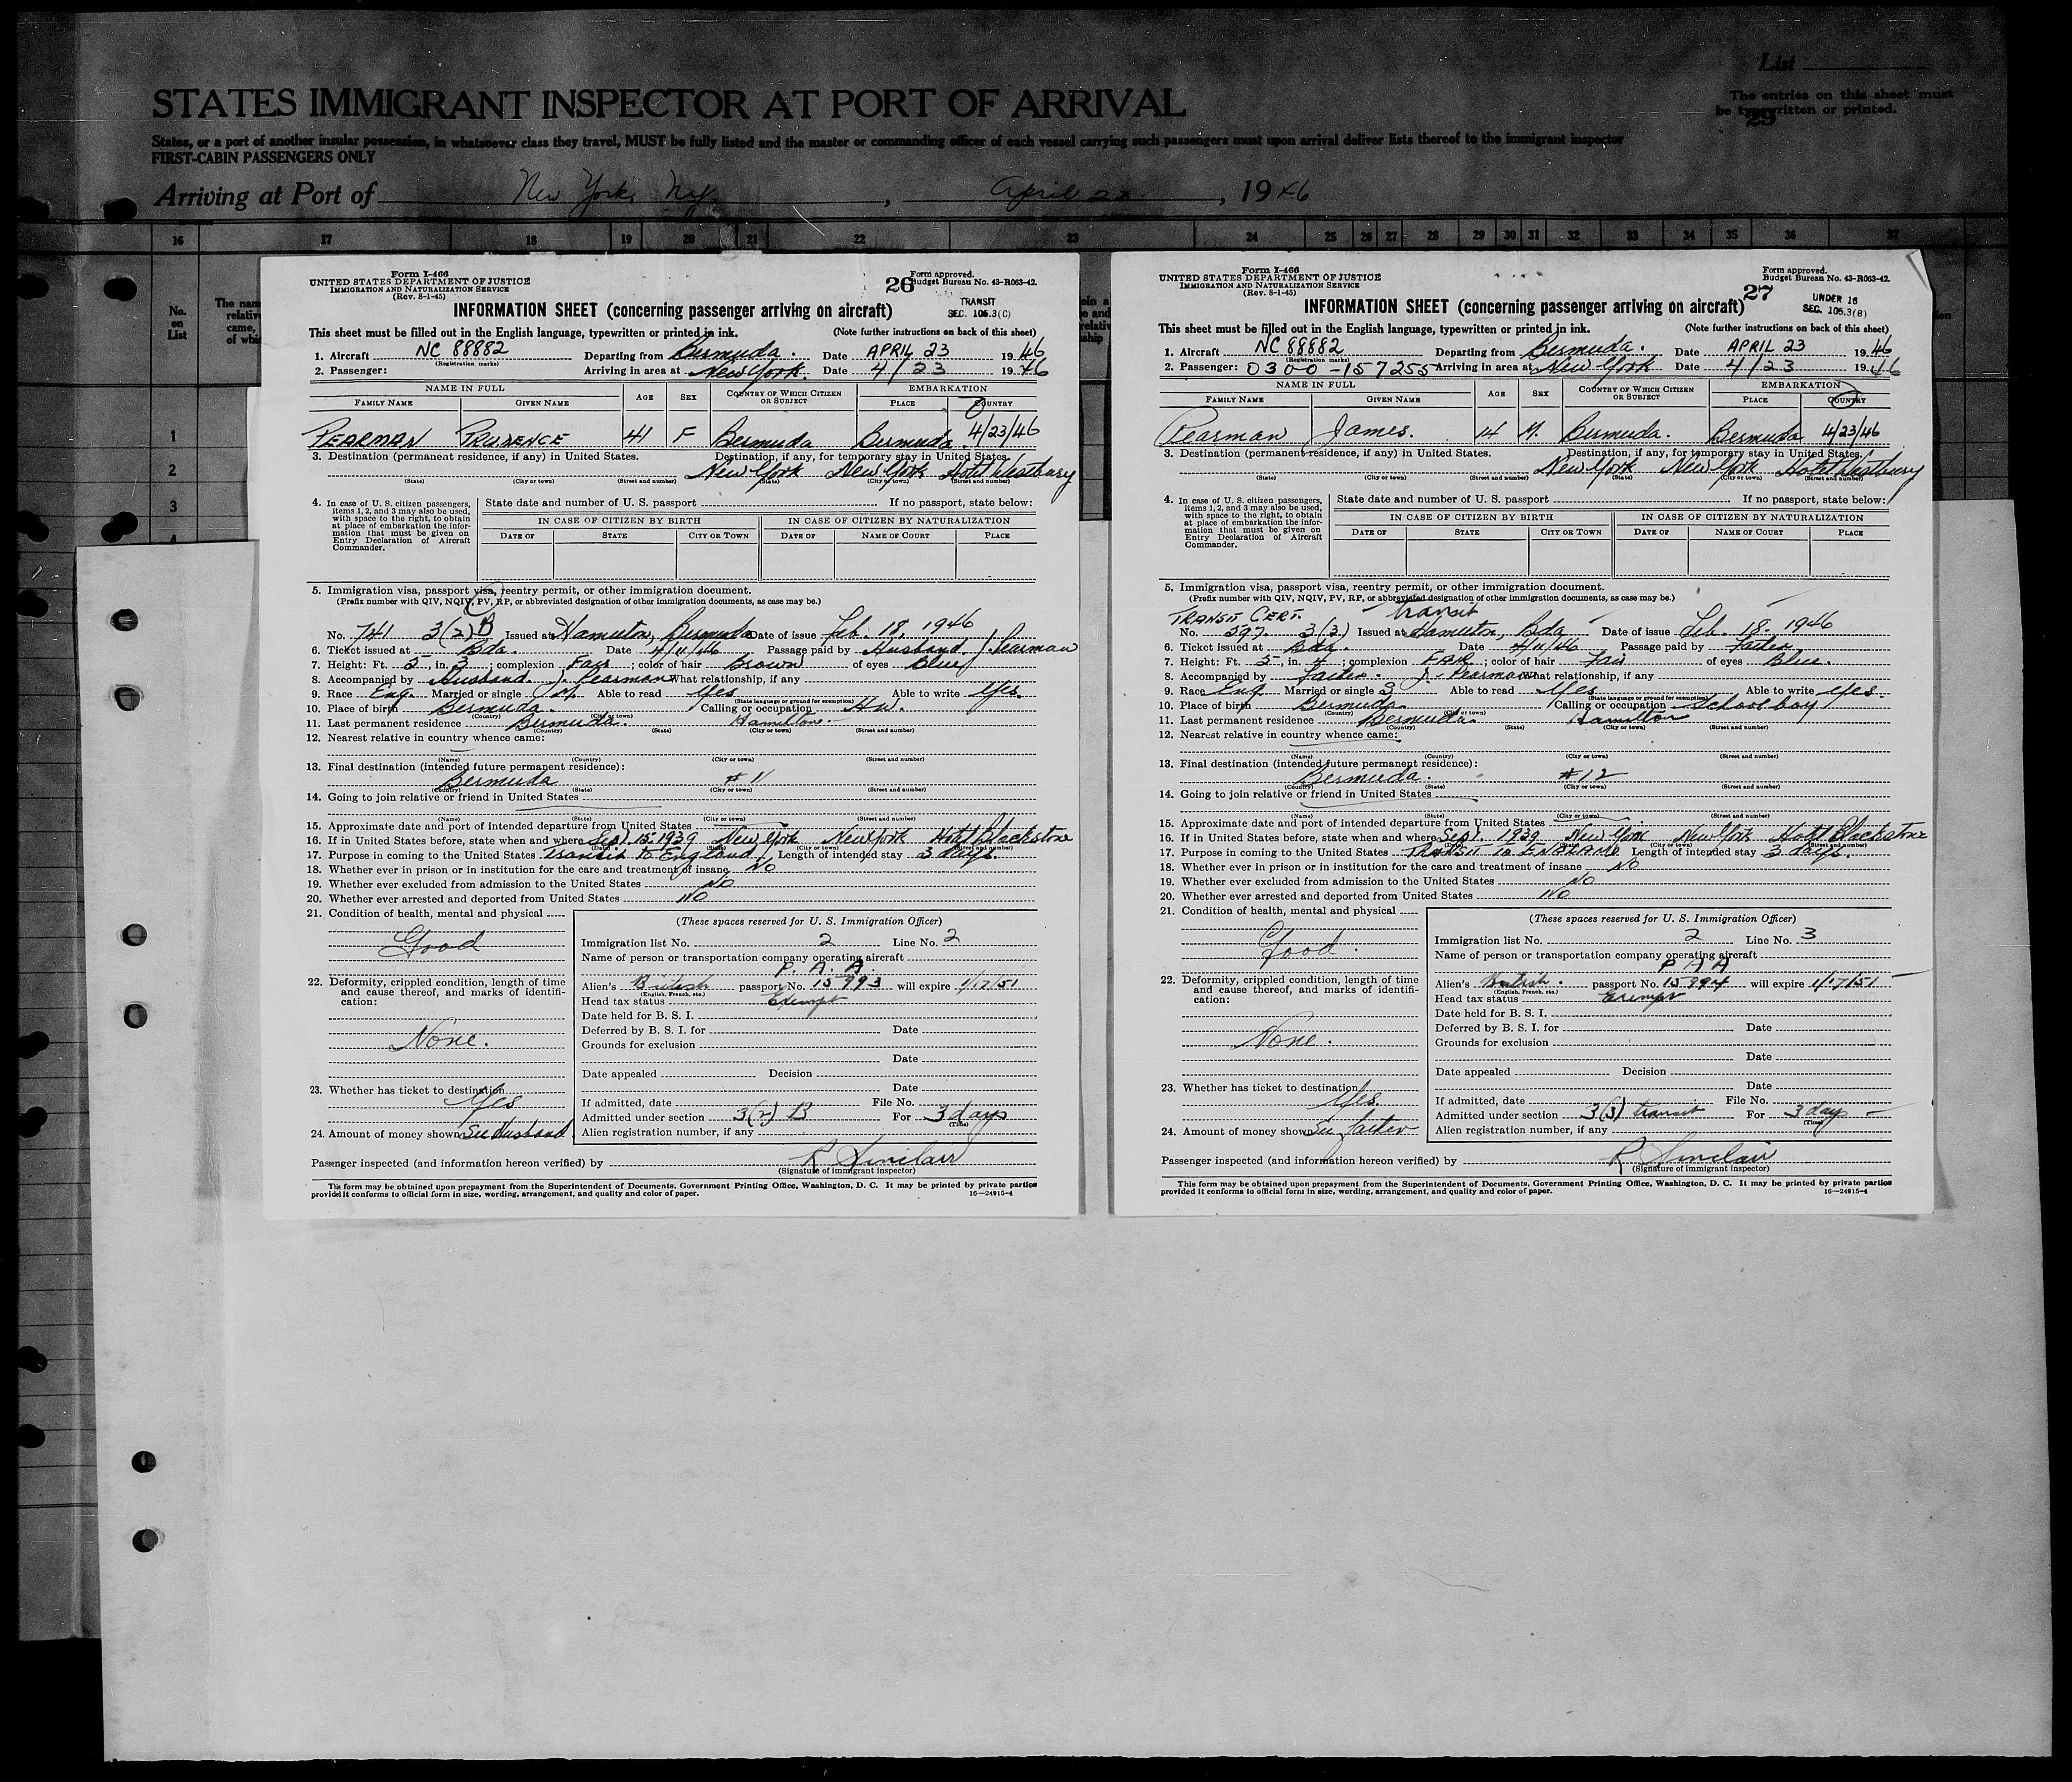 List
STATES IMMIGRANT INSPECTOR AT PORT OF ARRIVAL
The entries on this sheet must
be typewritten or printed.
29
States, or a part of another insular possession, in whatsoever class they travel, MUST be fully listed and the master or commanding officer of each vessel carrying such passengers must upon arrival deliver lists thereof to the immigrant inspector
FIRST-CABIN PASSENGERS ONLY
Arriving at Port of New York, N.Y. , April 23 , 1946
16 17 18 19 20 21 22 23 24 25 26 27 28 29 30 31 32 33 34 35 36 37
No.
on
List
1
2
3
4
Form I-466
UNITED STATES DEPARTMENT OF JUSTICE
IMMIGRATION AND NATURALIZATION SERVICE
(Rev. 8-1-45)
26
Form approved.
Budget Bureau No. 43-R063-42.
INFORMATION SHEET (concerning passenger arriving on aircraft)
TRANSIT
SEC. 105.3(C)
This sheet must be filled out in the English language, typewritten or printed in ink. (Note further instructions on back of this sheet)
1. Aircraft NC 88882 Departing from Bermuda. Date APRIL 23 1946
(Registration marks)
2. Passenger: Arriving in area at New York. Date 4/23 1946
NAME IN FULL AGE SEX COUNTRY OF WHICH CITIZEN OR SUBJECT EMBARKATION
FAMILY NAME GIVEN NAME PLACE COUNTRY
PEARMAN PRUDENCE 41 F Bermuda Bermuda 4/23/46
3. Destination (permanent residence, if any) in United States. Destination, if any, for temporary stay in United States.
New York New York Hotel Westbury
(State) (City or town) (Street and number) (State) (City or town) (Street and number)
4. In case of U. S. citizen passengers, items 1, 2, and 3 may also be used, with space to the right, to obtain at place of embarkation the information that must be given on Entry Declaration of Aircraft Commander.
State date and number of U. S. passport If no passport, state below:
IN CASE OF CITIZEN BY BIRTH IN CASE OF CITIZEN BY NATURALIZATION
DATE OF STATE CITY OR TOWN DATE OF NAME OF COURT PLACE
5. Immigration visa, passport visa, reentry permit, or other immigration document.
(Prefix number with QIV, NQIV, PV, RP, or abbreviated designation of other immigration documents, as case may be.)
No. 741 3(2) B Issued at Hamilton, Bermuda Date of issue Feb. 18, 1946
6. Ticket issued at Bda. Date 4/11/46 Passage paid by Husband J. Pearman
7. Height: Ft. 5, in. 3; complexion Fair; color of hair Brown of eyes Blue
8. Accompanied by Husband J. Pearman What relationship, if any
9. Race Eng. Married or single M. Able to read Yes Able to write Yes.
(State language or ground for exemption)
10. Place of birth Bermuda. Calling or occupation Hw.
(Country) (City or town)
11. Last permanent residence Bermuda. Hamilton.
(Country) (State) (City or town) (Street and number)
12. Nearest relative in country whence came:
(Name) (Country) (City or town) (Street and number)
13. Final destination (intended future permanent residence):
Bermuda #11
(Country) (State) (City or town) (Street and number)
14. Going to join relative or friend in United States
(Name) (State) (City or town) (Street and number)
15. Approximate date and port of intended departure from United States
16. If in United States before, state when and where Sept. 15, 1939 New York New York Hotel Blackstone
(Date) (State) (City or town) (Street and number)
17. Purpose in coming to the United States Transit to England Length of intended stay 3 days.
18. Whether ever in prison or in institution for the care and treatment of insane No
19. Whether ever excluded from admission to the United States No
20. Whether ever arrested and deported from United States No
21. Condition of health, mental and physical
Good
22. Deformity, crippled condition, length of time and cause thereof, and marks of identification:
None.
23. Whether has ticket to destination
Yes
24. Amount of money shown See Husband
(These spaces reserved for U. S. Immigration Officer)
Immigration list No. 2 Line No. 2
Name of person or transportation company operating aircraft
P. A. A.
Alien's British passport No. 15793 will expire 1/17/51
(English, French, etc.)
Head tax status Exempt
Date held for B. S. I.
Deferred by B. S. I. for Date
Grounds for exclusion
Date
Date appealed Decision
Date
If admitted, date File No.
Admitted under section 3(2) B For 3 days
(Time)
Alien registration number, if any
Passenger inspected (and information hereon verified) by R Sinclair
(Signature of immigrant inspector)
This form may be obtained upon prepayment from the Superintendent of Documents, Government Printing Office, Washington, D. C. It may be printed by private parties
provided it conforms to official form in size, wording, arrangement, and quality and color of paper. 16—24915-4
Form I-466
UNITED STATES DEPARTMENT OF JUSTICE
IMMIGRATION AND NATURALIZATION SERVICE
(Rev. 8-1-45)
27
Form approved.
Budget Bureau No. 43-R063-42.
INFORMATION SHEET (concerning passenger arriving on aircraft)
UNDER 16
SEC. 105.3(B)
This sheet must be filled out in the English language, typewritten or printed in ink. (Note further instructions on back of this sheet)
1. Aircraft NC 88882 Departing from Bermuda. Date APRIL 23 1946
(Registration marks)
2. Passenger: 0300-157255 Arriving in area at New York Date 4/23 1946
NAME IN FULL AGE SEX COUNTRY OF WHICH CITIZEN OR SUBJECT EMBARKATION
FAMILY NAME GIVEN NAME PLACE COUNTRY
Pearman James. 14 M. Bermuda. Bermuda 4/23/46
3. Destination (permanent residence, if any) in United States. Destination, if any, for temporary stay in United States.
New York New York Hotel Westbury
(State) (City or town) (Street and number) (State) (City or town) (Street and number)
4. In case of U. S. citizen passengers, items 1, 2, and 3 may also be used, with space to the right, to obtain at place of embarkation the information that must be given on Entry Declaration of Aircraft Commander.
State date and number of U. S. passport If no passport, state below:
IN CASE OF CITIZEN BY BIRTH IN CASE OF CITIZEN BY NATURALIZATION
DATE OF STATE CITY OR TOWN DATE OF NAME OF COURT PLACE
5. Immigration visa, passport visa, reentry permit, or other immigration document.
(Prefix number with QIV, NQIV, PV, RP, or abbreviated designation of other immigration documents, as case may be.)
TRANSIT CERT. transit
No. 297. 3(3) Issued at Hamilton, Bda Date of issue Feb. 18. 1946
6. Ticket issued at Bda. Date 4/11/46 Passage paid by Father
7. Height: Ft. 5, in. 4; complexion FAIR; color of hair Fair of eyes Blue.
8. Accompanied by Father. J. Pearman What relationship, if any
9. Race Eng Married or single S Able to read Yes Able to write Yes.
(State language or ground for exemption)
10. Place of birth Bermuda. Calling or occupation School boy
(Country) (City or town)
11. Last permanent residence Bermuda. Hamilton
(Country) (State) (City or town) (Street and number)
12. Nearest relative in country whence came:
(Name) (Country) (City or town) (Street and number)
13. Final destination (intended future permanent residence):
Bermuda. #12
(Country) (State) (City or town) (Street and number)
14. Going to join relative or friend in United States
(Name) (State) (City or town) (Street and number)
15. Approximate date and port of intended departure from United States
16. If in United States before, state when and where Sept. 1939 New York New York Hotel Blackstone
(Date) (City or town) (Street and number)
17. Purpose in coming to the United States TRANSIT to ENGLAND Length of intended stay 3 days.
18. Whether ever in prison or in institution for the care and treatment of insane No
19. Whether ever excluded from admission to the United States No
20. Whether ever arrested and deported from United States No
21. Condition of health, mental and physical
Good.
22. Deformity, crippled condition, length of time and cause thereof, and marks of identification:
None.
23. Whether has ticket to destination
Yes.
24. Amount of money shown See father
(These spaces reserved for U. S. Immigration Officer)
Immigration list No. 2 Line No. 3
Name of person or transportation company operating aircraft
P A A
Alien's British. passport No. 15794 will expire 1/17/51
(English, French, etc.)
Head tax status Exempt
Date held for B. S. I.
Deferred by B. S. I. for Date
Grounds for exclusion
Date
Date appealed Decision
Date
If admitted, date File No.
Admitted under section 3(3) transit For 3 days
(Time)
Alien registration number, if any
Passenger inspected (and information hereon verified) by R Sinclair
(Signature of immigrant inspector)
This form may be obtained upon prepayment from the Superintendent of Documents, Government Printing Office, Washington, D. C. It may be printed by private parties
provided it conforms to official form in size, wording, arrangement, and quality and color of paper. 16—24915-4